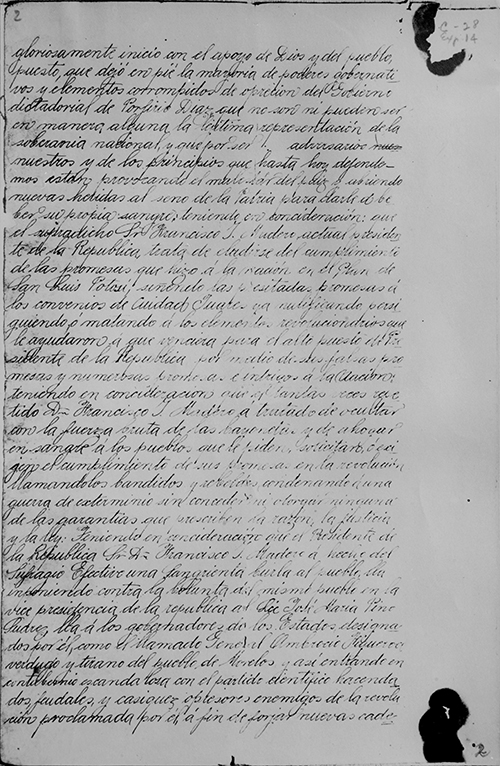 2
C-28
Exp. 14
gloriosamente inicio con el apoyo de Dios y del pueblo,
puesto que dejo en pié la mayoria de poderes gobernati
vos y elementos corrompidos de opresion del Gobierno
dictatorial de Porfirio Diaz, que no son ni pueden ser
en manera alguna la legítima representación de la
soberania nacional, y que por ser adversarios
nuestros y de los principios que hasta hoy defende-
mos están provocando el malestar del pais y abriendo
nuevas heridas al seno de la Patria para darle á be
ber su propia sangre; teniendo en consideracion: que
el supradicho Sr. Francisco I. Madero actual presiden
te de la Republica, trata de eludirse del cumplimiento
de las promesas que hizo á la nacion en el Plan de
San Luis Potosí, las precitadas promesas á
los convenios de Ciudad Juarez ya nulificando persi
guiendo, ó matando á los elementos revolucionarios que
le ayudaron á que el alto puesto de Pre
sidente de la Republica por medio de sus falsas pro
mesas y numerosas intrigas á la Nacion:
teniendo en consideracion que el tantas veces repe
tido Francisco I. Madero á tratado de ocultar
con la fuerza bruta de las bayonetas y de ahogar
en sangre á los pueblos que le piden, solicitan, ó exi
gen el cumplimiento de sus promesas en la revolución
llamandolos bandidos y rebeldes, condenando á una
guerra de exterminio sin conceder ni otorgar ninguna
de las garantias que prescriben la razon, la justicia
y la ley. Teniendo en consideracion que el Presidente de
la Republica Sr. Dn. Francisco I. Madero á hecho del
Sufragio Efectivo una sangrienta burla al pueblo,
imponiendo contra la voluntad del mismo pueblo en la
vice presidencia de la republica al Lic José Maria Pino
Suarez, á los gobernadores de los Estados designa
dos por él, como el llamado General Ambrocio Figueroa
verdugo y tirano del pueblo de Morelos, y asi entrando en
escandalosa con el partido cientifico hacenda
dos feudales, y caciques opresores enemigos de la revolu
cion proclamada por él á fin de forjar nuevas cade
2